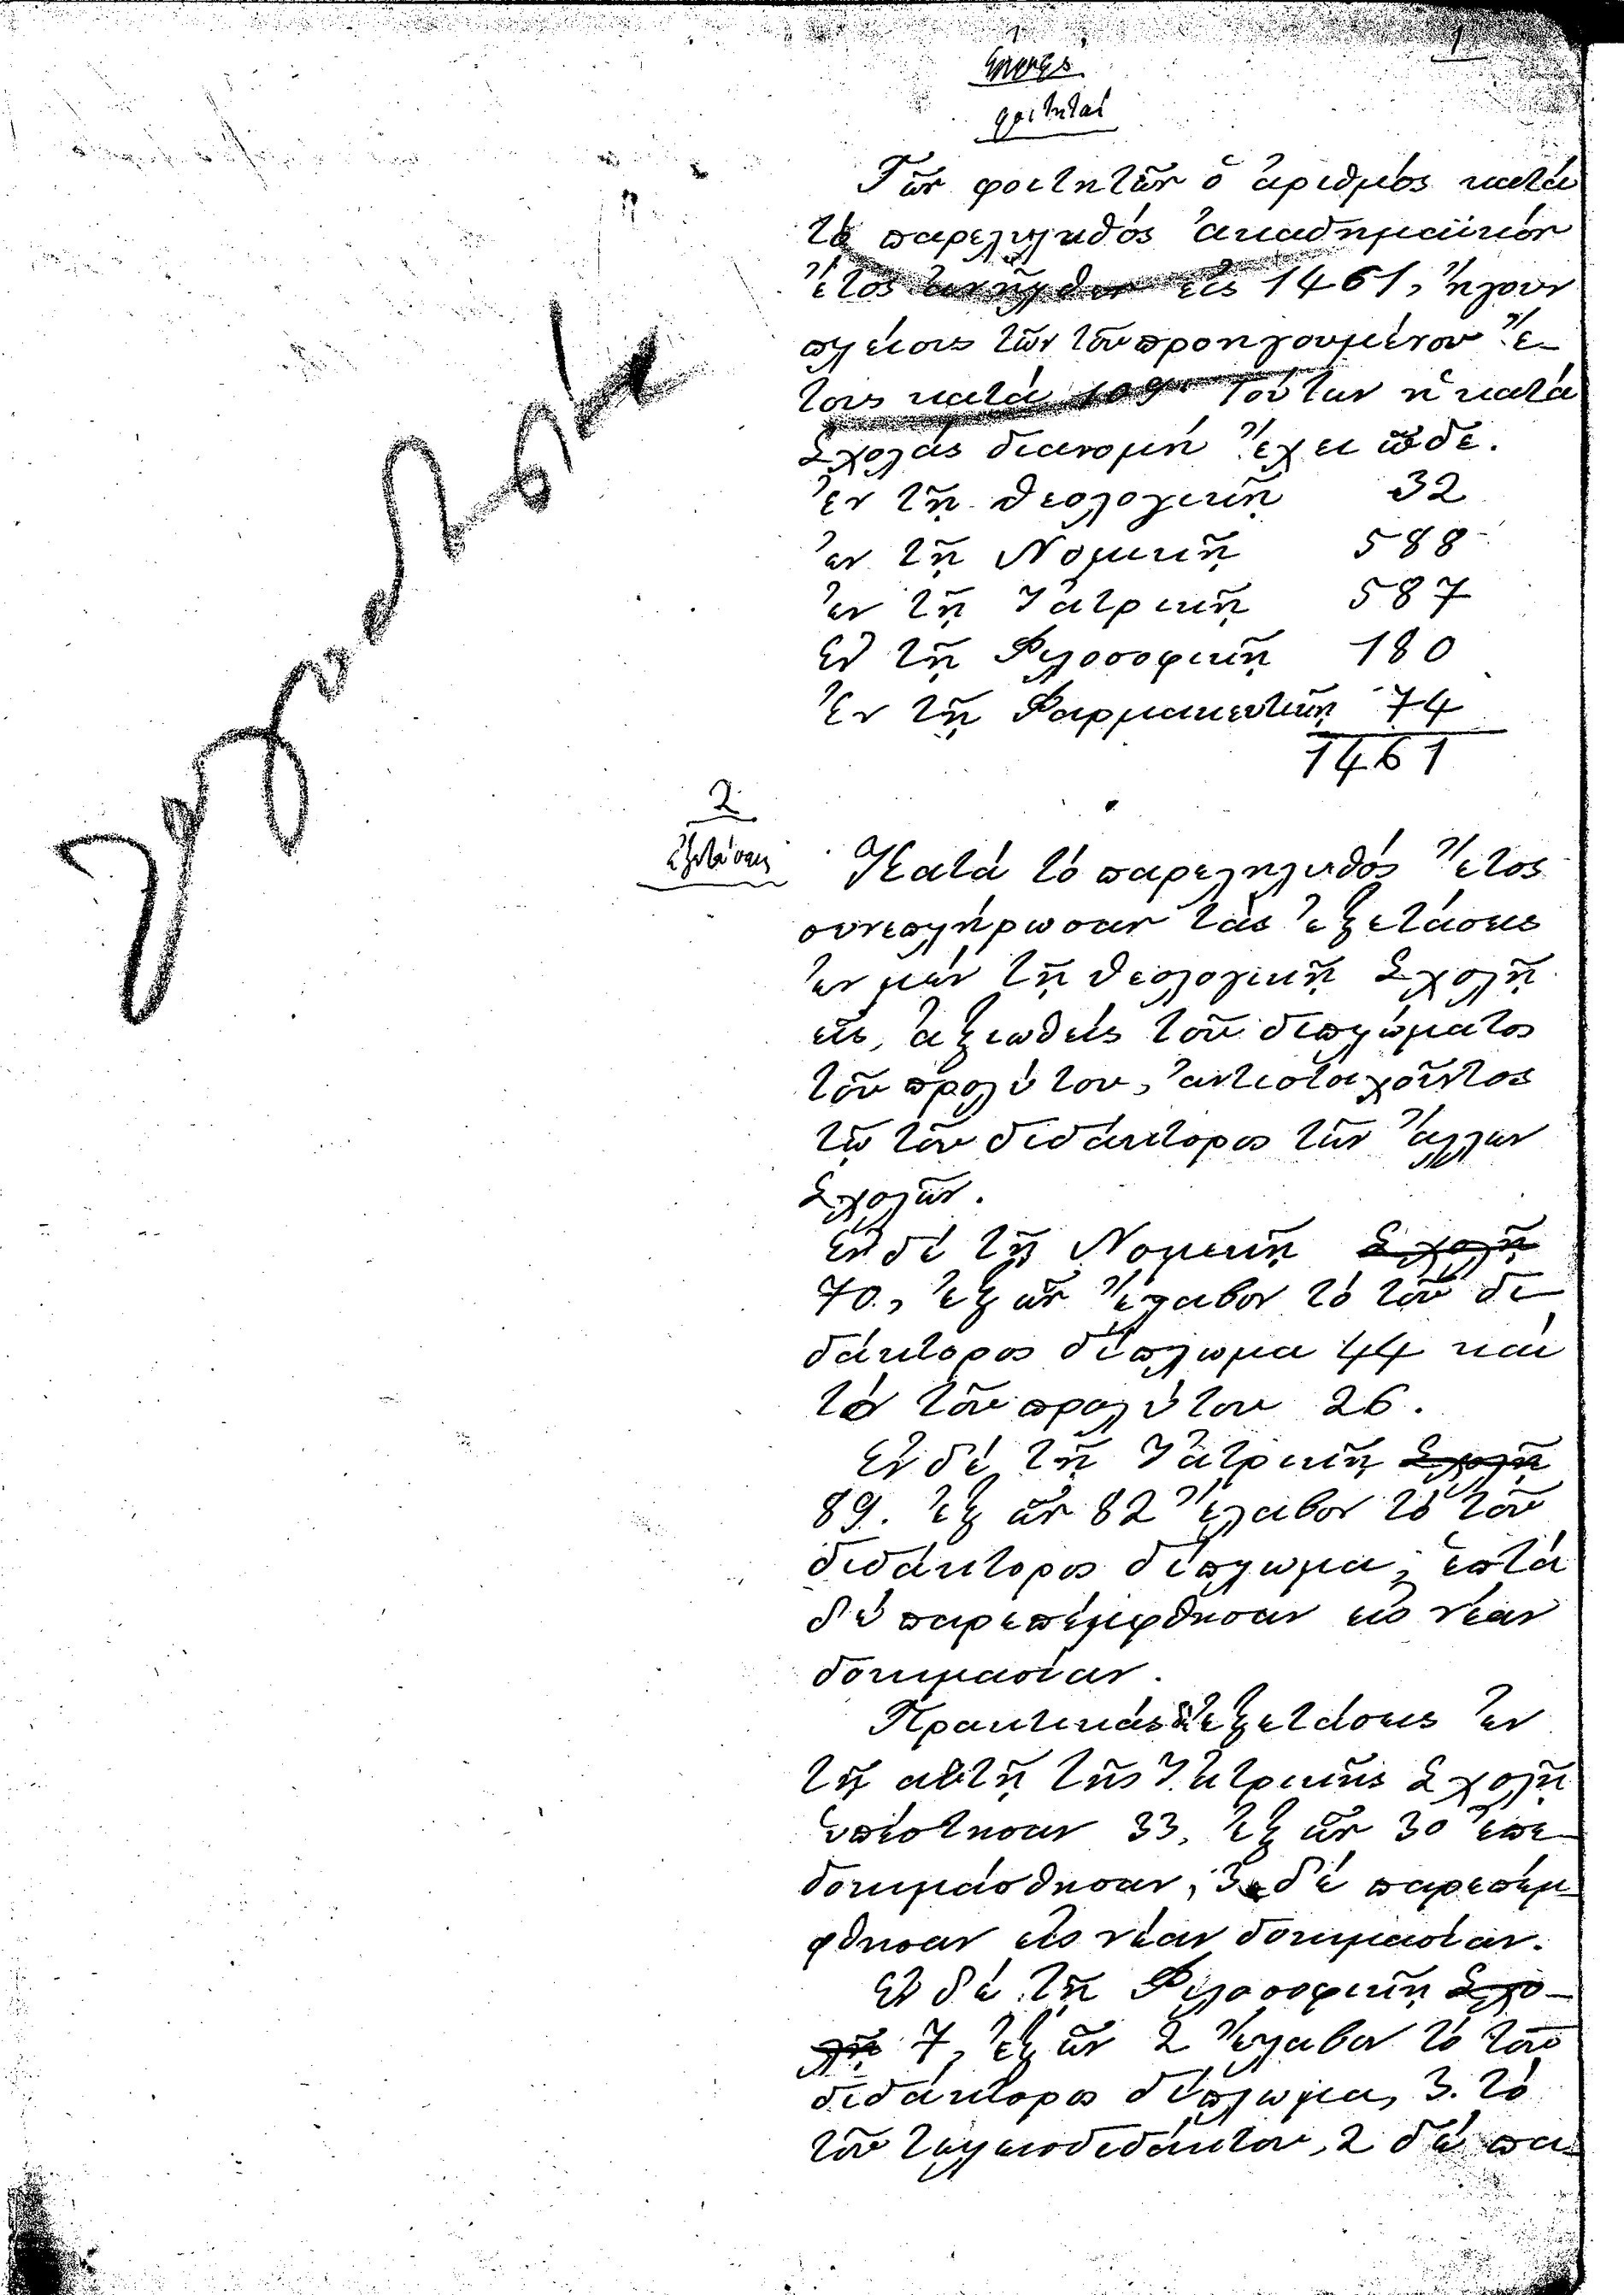 1
1
φοιτηταί
Τῶν φοιτητῶν ὁ ἀριθμός κατά
τό παρεληλυθός ἀκαδημαϊκόν
ἔτος ἀνῆλθεν εἰς 1461, ἤγουν
πλείους τῶν τοῦ προηγουμένου ἔ-
τους κατά 109. Τούτων ἡ κατά
Σχολάς διανομή ἔχει ὧδε.
ἐν τῇ Θεολογικῇ 32
ἐν τῇ Νομικῇ 588
ἐν τῇ Ἰατρικῇ 587
ἐν τῇ Φιλοσοφικῇ 180
Ἐν τῇ Φαρμακευτικῇ 74
1461
2
ἐξετάσεις
Κατά τό παρεληλυθός ἔτος
συνεπλήρωσαν τάς ἐξετάσεις
ἐν μέν τῇ Θεολογικῇ Σχολῇ
εἷς, ἀξιωθείς τοῦ διπλώματος
τοῦ προλύτου, ἀντιστοιχοῦντος
τῷ τοῦ διδάκτορος τῶν ἄλλων
Σχολῶν.
Ἐν δέ τῇ Νομικῇ Σχολῇ
70, ἐξ ὧν ἔλαβον τό τοῦ δι-
δάκτορος δίπλωμα 44 καί
τό τοῦ προλύτου 26.
Ἐν δέ τῇ Ἰατρικῇ Σχολῇ
89. ἐξ ὧν 82 ἔλαβον τό τοῦ
διδάκτορος δίπλωμα, ἑπτά
δέ παρεπέμφθησαν εἰς νέαν
δοκιμασίαν.
Πρακτικάς δέ ἐξετάσεις ἐν
τῇ αὐτῇ τῆς Ἰατρικῆς Σχολῇ
ὑπέστησαν 33, ἐξ ὧν 30 ἐπε-
δοκιμάσθησαν, 3 δέ παρεπέμ-
φθησαν εἰς νέαν δοκιμασίαν.
Ἐν δέ τῇ Φιλοσοφικῇ Σχο-
λῇ 7, ἐξ ὧν 2 ἔλαβον τό τοῦ
διδάκτορος δίπλωμα, 3. τό
τοῦ τελειοδιδάκτου, 2 δέ πα-